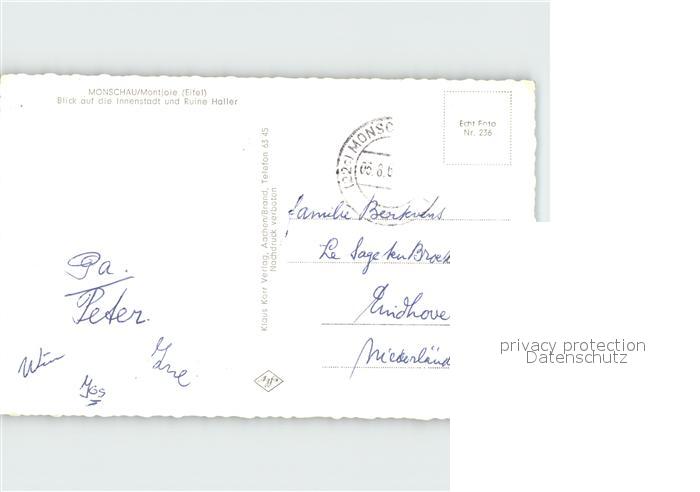 MONSCHAU/Montjoie (Eifel)
Blick auf die Innenstadt und Ruine Haller
Echt Foto
Nr. 236
(22c) MONSC
06.8.6
Klaus Korr Verlag, Aachen/Brand, Telefon 63 45
Nachdruck verboten
Familie
Le Sage ten Broek
Eindhove
Niederländ
Pa.
Peter.
Wim
Ine
Jos
privacy protection
Datenschutz